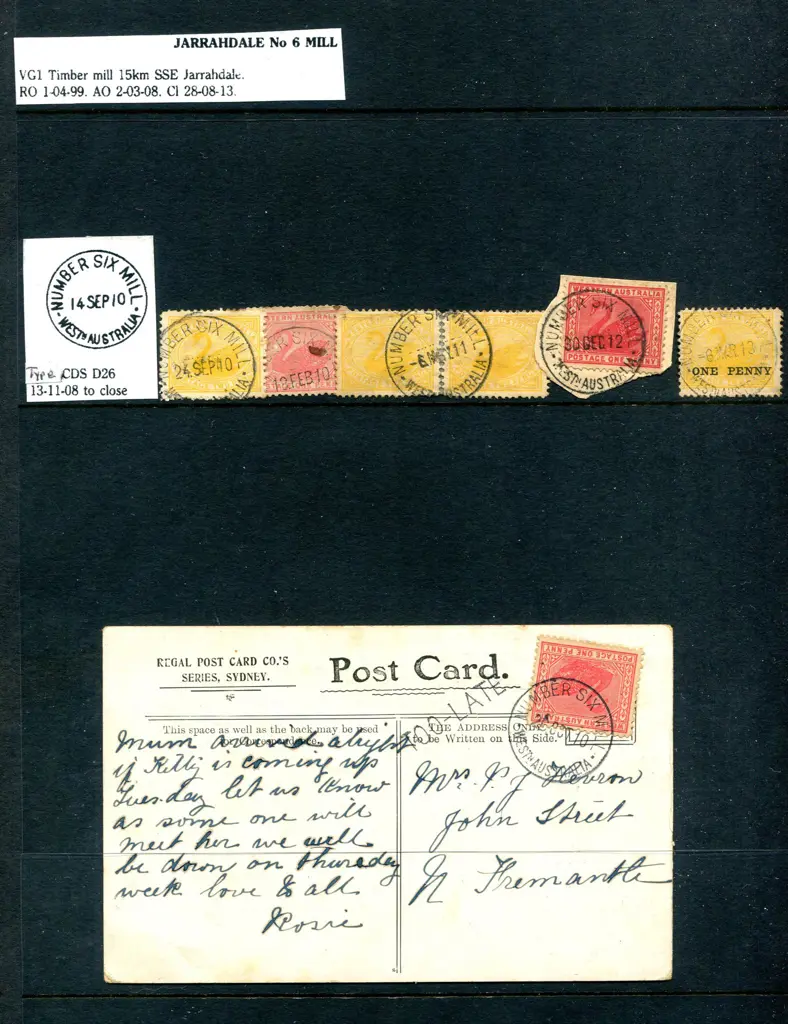 JARRAHDALE No 6 MILL
VG1 Timber mill 15km SSE Jarrahdale.
RO 1-04-99. AO 2-03-08. Cl 28-08-13.
NUMBER SIX MILL
14 SEP 10
WESTN AUSTRALIA
Type CDS D26
13-11-08 to close
NUMBER SIX MILL
24 SEP 10
SIX
19 FEB 10
NUMBER SIX MILL
11
WESTN AUSTRALIA
WESTERN AUSTRALIA
NUMBER SIX MILL
30 DEC 12
POSTAGE ONE PENNY
WESTN AUSTRALIA
ONE PENNY
REGAL POST CARD CO.'S
SERIES, SYDNEY.
Post Card.
POSTAGE ONE PENNY
NUMBER SIX MILL
10
WESTN AUSTRALIA
TOO-LATE
This space as well as the back may be used
for Correspondence.
THE ADDRESS ONLY
to be Written on this Side.
Mum arrived alright
if Kitty is coming up
Tuesday let us know
as some one will
meet her we will
be down on thursday
week love to all
Rosie
Mrs P J Hevron
John Street
N Fremantle